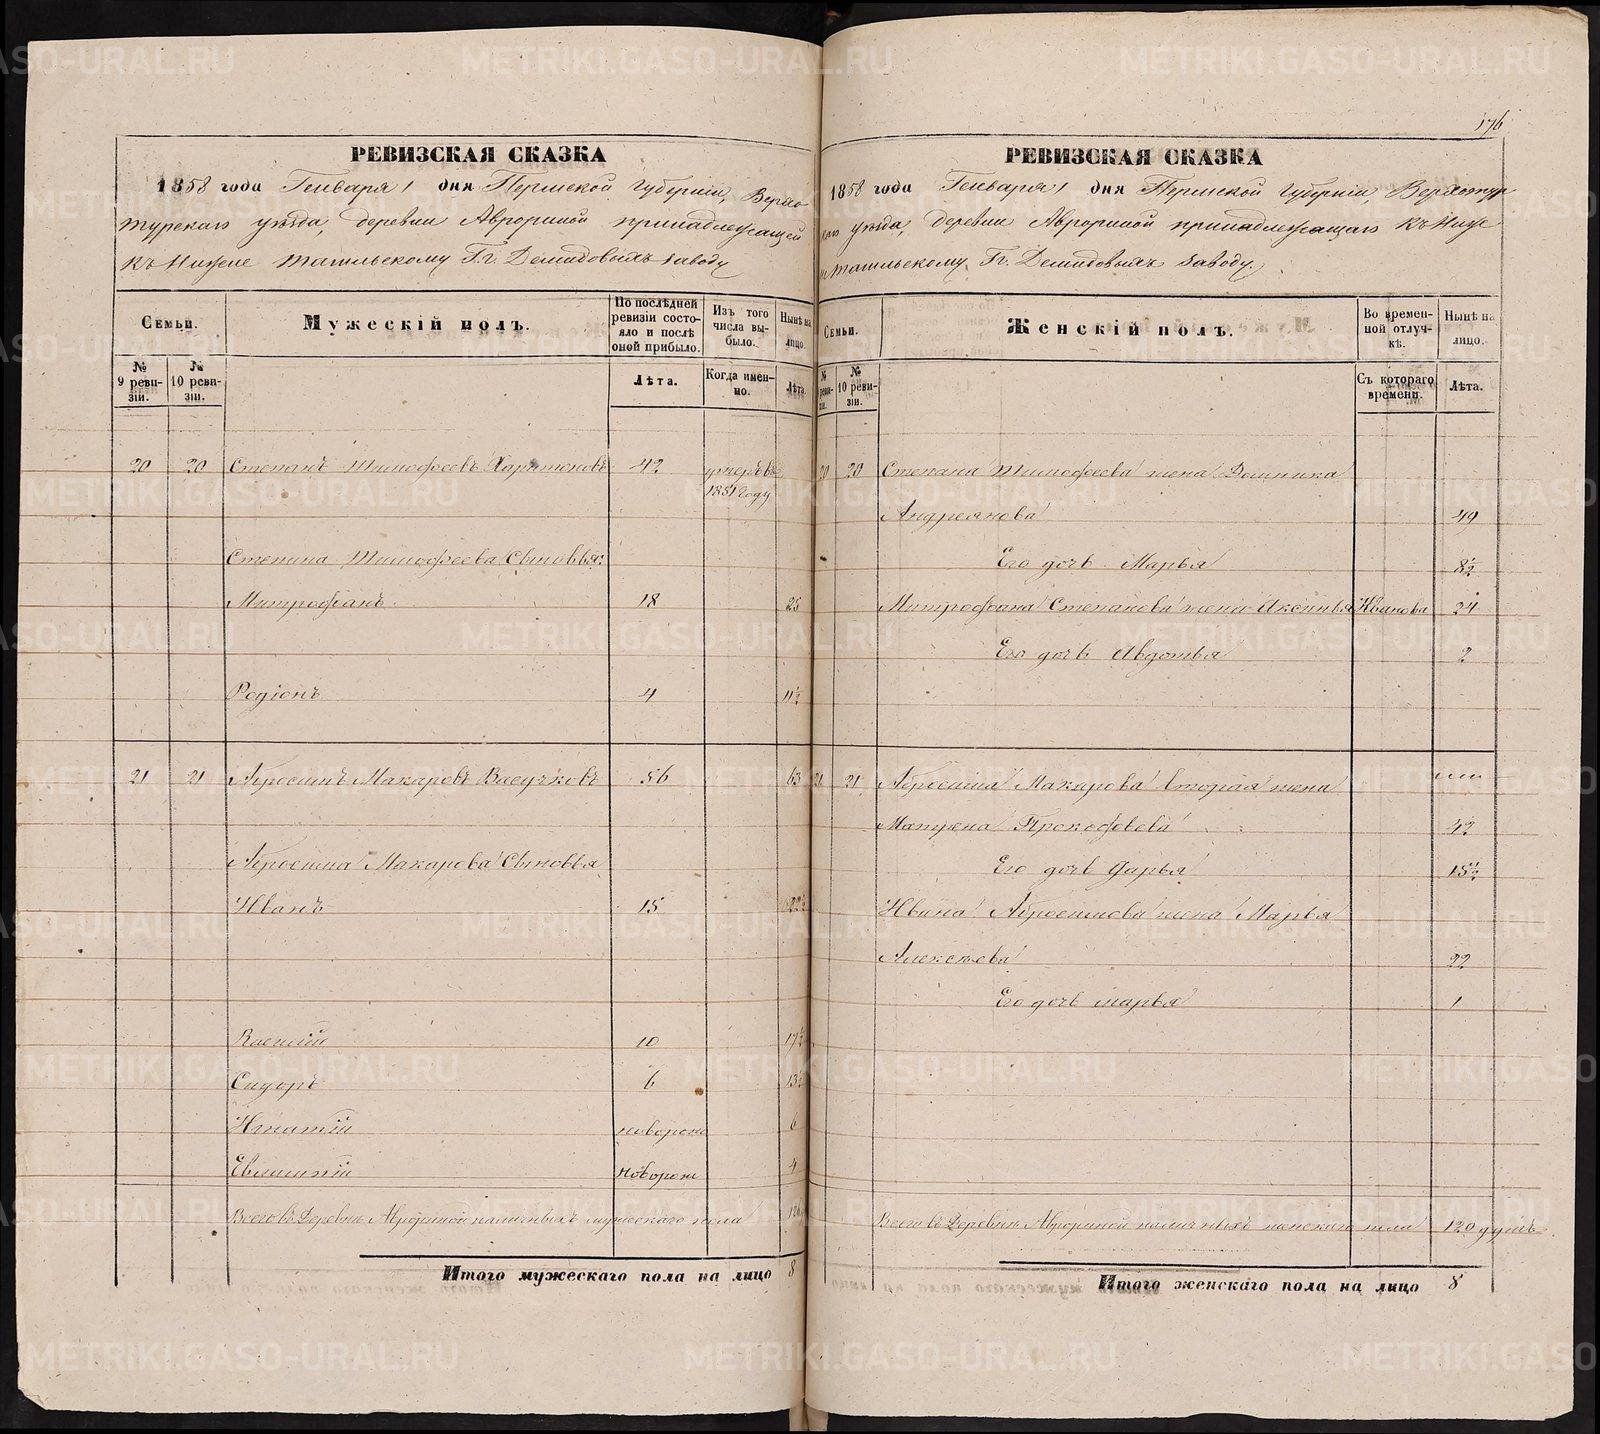 176
РЕВИЗСКАЯ СКАЗКА
1858 года Генваря 1 дня Пермской Губерніи, Верхо-
турскаго уѣзда, деревни Аврориной принадлежащей
къ Нижне Тагильскому Г.г. Демидовыхъ заводу
Семьи.
Мужескій полъ.
По послѣдней ревизіи состояло и послѣ оной прибыло.
Изъ того числа выбыло.
Нынѣ на лицо.
№ 9 ревизіи.
№ 10 ревизіи.
Лѣта.
Когда именно.
Лѣта.
20 20 Степанъ Тимофеевъ Харитоновъ 42 умеръ въ
1851 году
Степана Тимофеева Сыновья:
Митрофанъ 18 25
Родіонъ 4 11½
21 21 Абросимъ Макаровъ Васучковъ 56 63
Абросима Макарова Сыновья
Иванъ 15 22½
Василій 10 17½
Сидоръ 6 13½
Игнатій новорож 6
Евлампій новорож 4
Всего въ Деревнѣ Аврориной наличныхъ мужескаго пола
Итого мужескаго пола на лицо 8
РЕВИЗСКАЯ СКАЗКА
1858 года Генваря 1 дня Пермской Губерніи, Верхотур
скаго уѣзда, деревни Аврориной принадлежащаго къ Ниж
не Тагильскому Гг. Демидовыхъ заводу.
Семьи.
Женскій полъ.
Во временной отлучкѣ.
Нынѣ на лицо.
№ ревизіи.
№ 10 ревизіи.
Съ котораго времени.
Лѣта.
20 20 Степана Тимофеева жена Домника
Андреянова 49
Его дочь Марья 8½
Митрофана Степанова жена Аксинья Иванова 24
Его дочь Авдотья 2
21 21 Абросима Макарова вторая жена
Матрена Прокофьева 42
Его дочь Дарья 15½
Ивана Абросимова жена Марья
Алексѣева 22
Его дочь Марья 1
Всего въ Деревнѣ Аврориной наличныхъ женскаго пола 120 душъ
Итого женскаго пола на лицо 8
METRIKI.GASO-URAL.RU